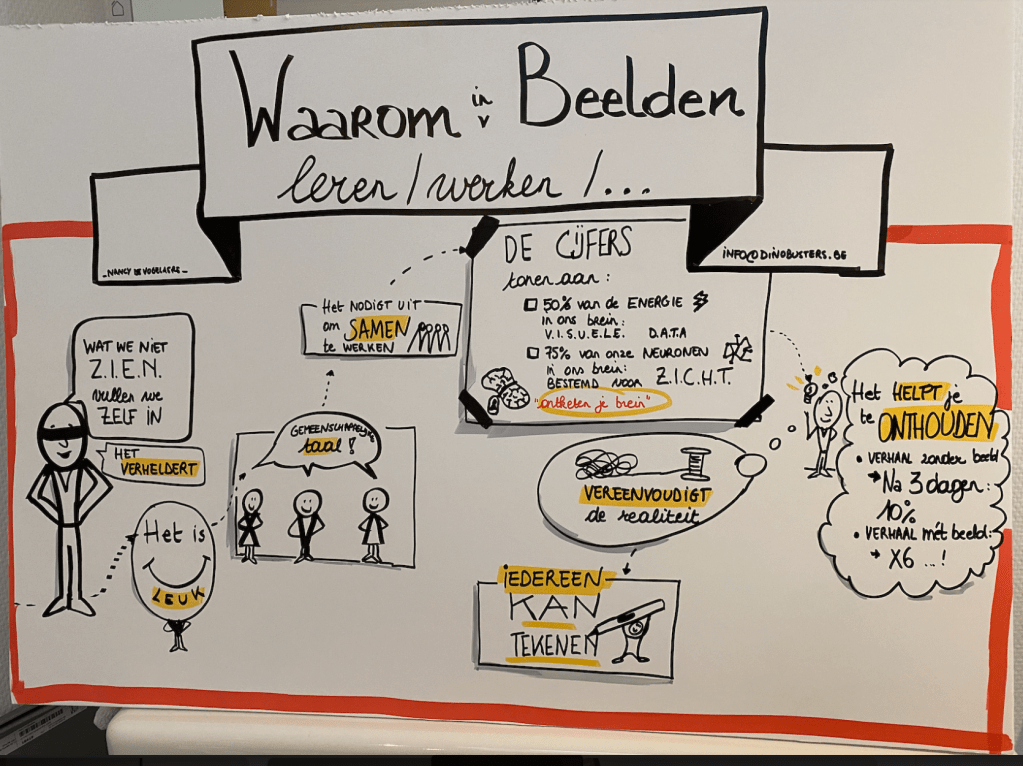 Waarom in Beelden
leren / werken / ...
- NANCY DE VOGELAERE -
INFO@DINOBUSTERS.BE
WAT WE NIET
Z.I.E.N.
vullen we
ZELF IN
HET
VERHELDERT
Het is
LEUK
GEMEENSCHAPPELIJKE
taal!
Het NODIGT UIT
om SAMEN
te WERKEN
DE CIJFERS
tonen aan:
50% van de ENERGIE
in ons brein:
V.I.S.U.E.L.E. D.A.T.A
75% van onze NEURONEN
in ons brein:
BESTEMD VOOR Z.I.C.H.T.
"ontketen je brein"
Het HELPT je
te ONTHOUDEN
• VERHAAL zonder beeld
→ Na 3 dagen:
10%
• VERHAAL mét beeld:
→ X6 ...!
VEREENVOUDIGT
de realiteit
IEDEREEN
KAN
TEKENEN